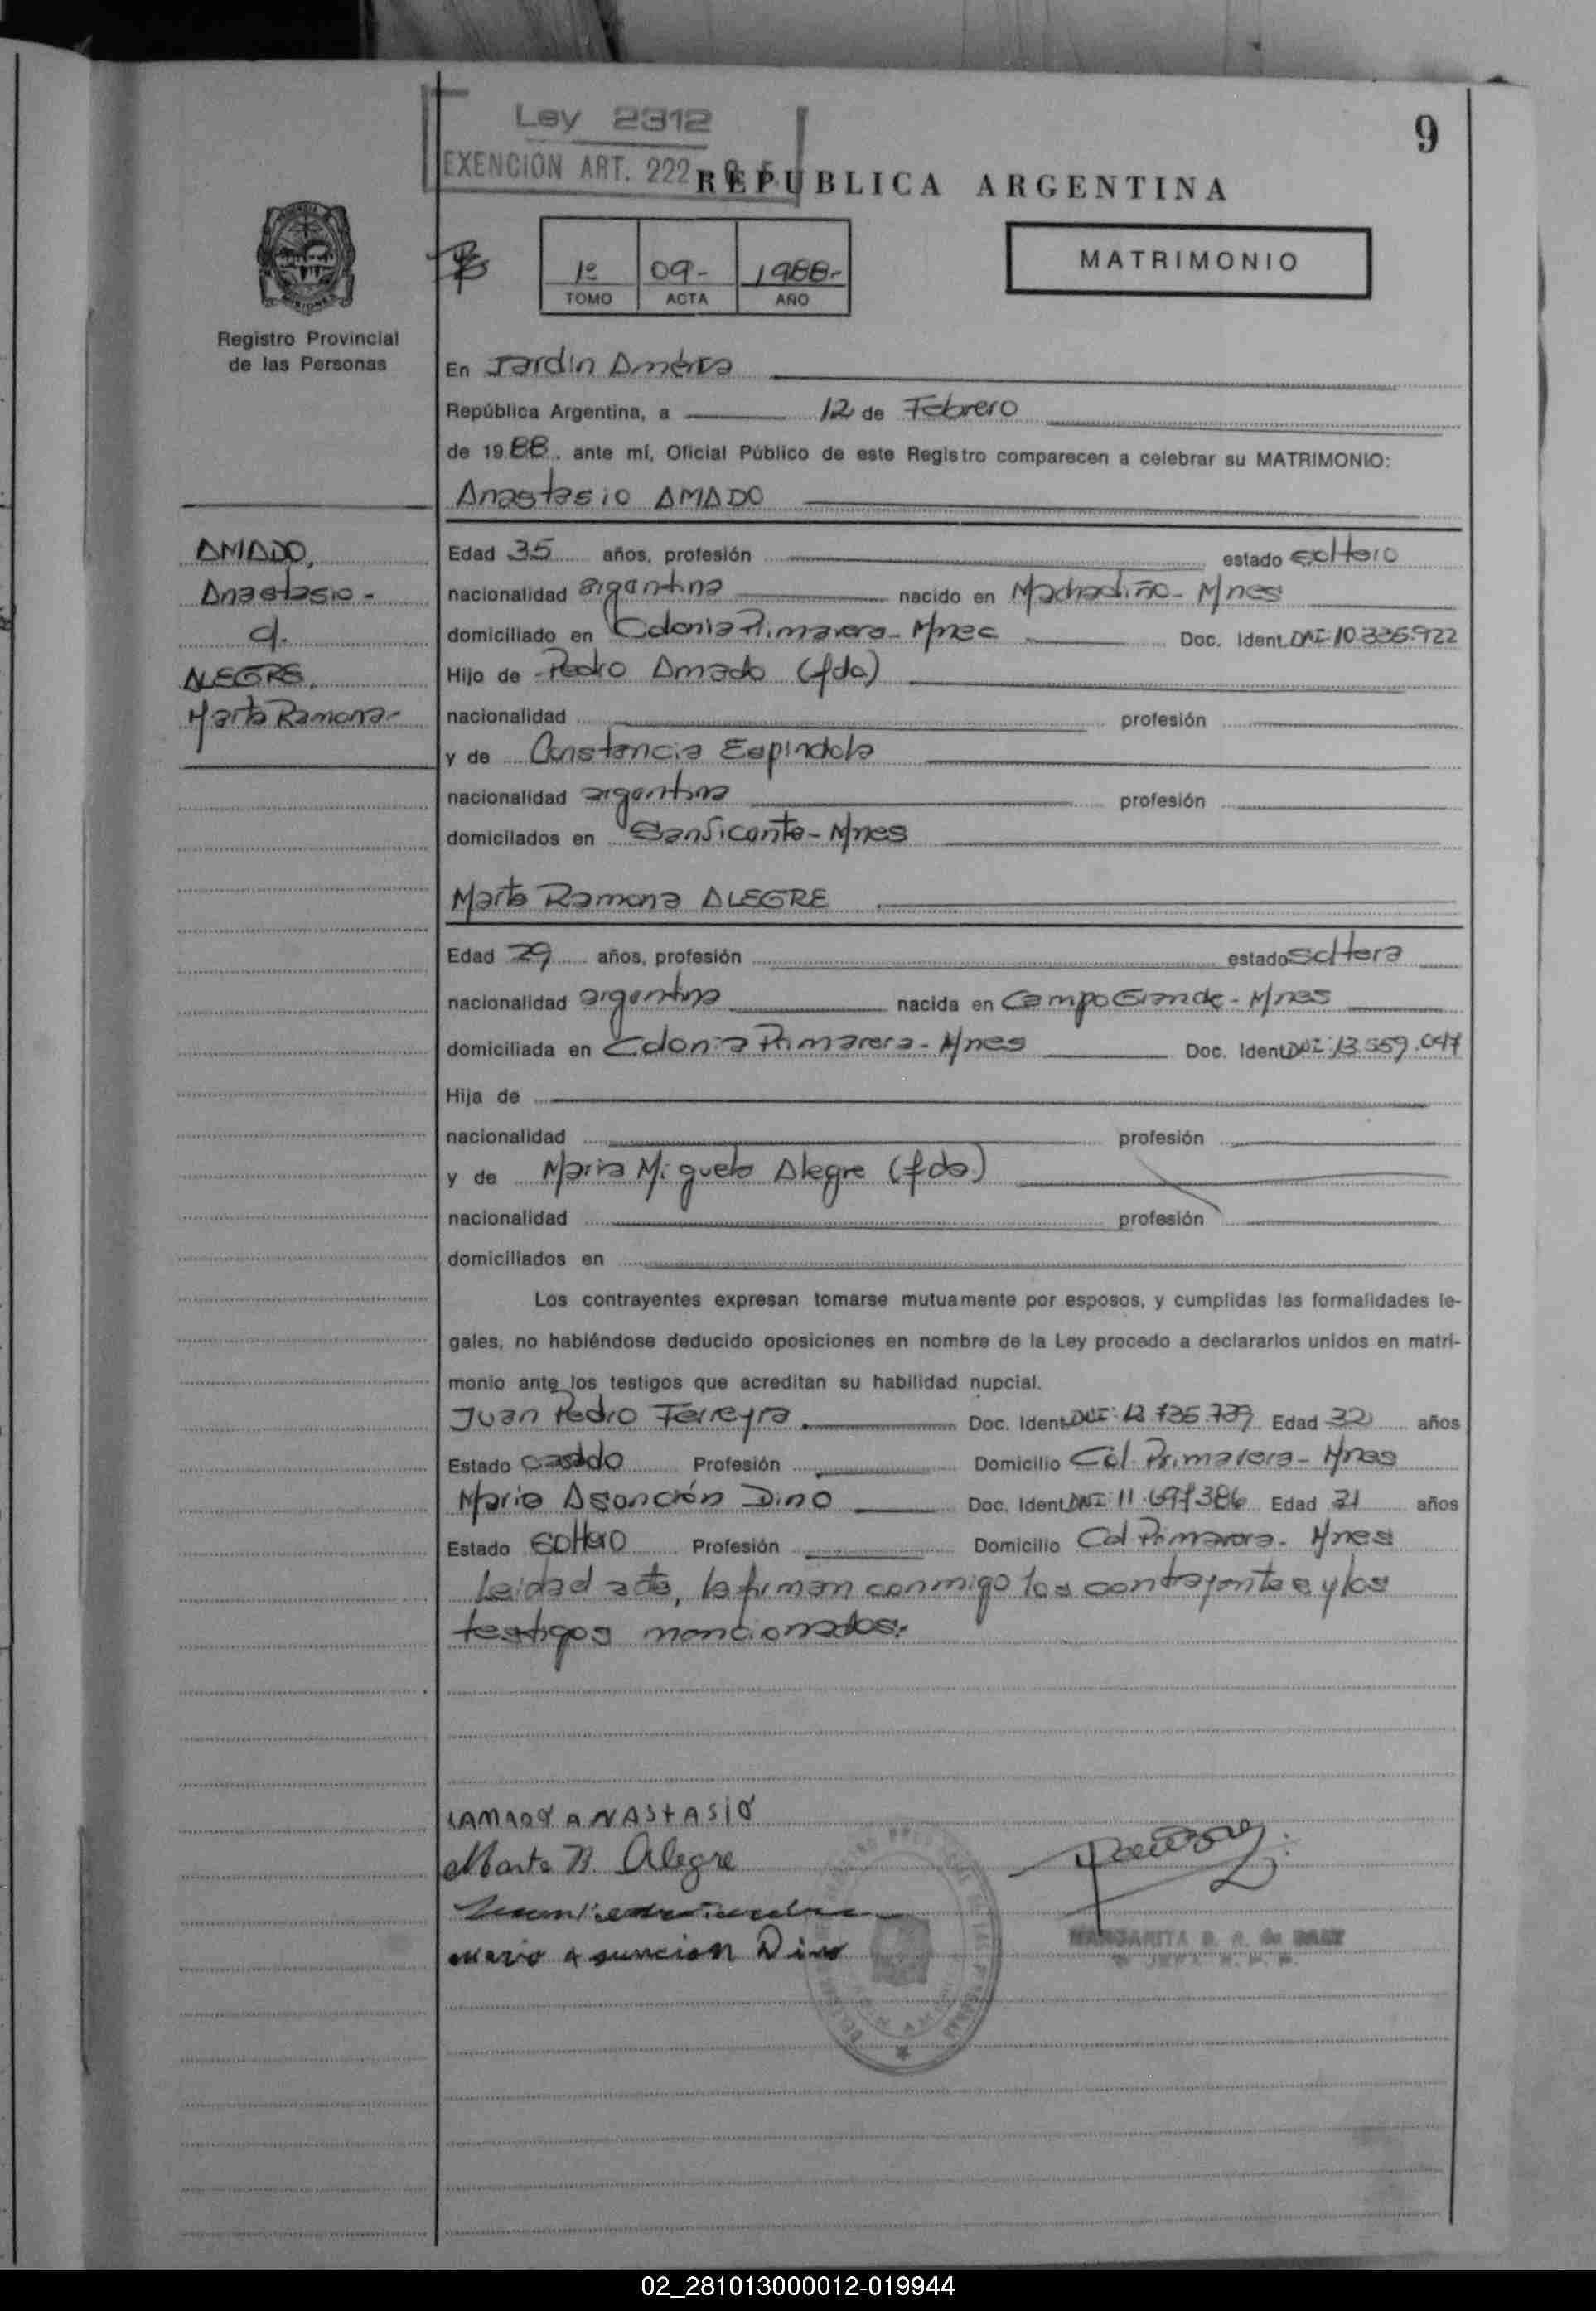 9
Ley 2312
EXENCION ART. 222
REPUBLICA ARGENTINA
MATRIMONIO
1º 09- 1988-
TOMO ACTA AÑO
Registro Provincial
de las Personas
En Jardín América
República Argentina, a 12 de Febrero
de 1988. ante mí, Oficial Público de este Registro comparecen a celebrar su MATRIMONIO:
Anastasio AMADO
AMADO,
Anastasio-
c/.
ALEGRE,
Marta Ramona-
Edad 35 años, profesión estado soltero
nacionalidad argentina nacido en Machadiño- Mnes
domiciliado en Colonia Primavera- Mnes Doc. Ident. DNI: 10.336.922
Hijo de Pedro Amado (fdo)
nacionalidad profesión
y de Constancia Espindola
nacionalidad argentina profesión
domicilados en San Vicente- Mnes
Marta Ramona ALEGRE
Edad 29 años, profesión estado soltera
nacionalidad argentina nacida en Campo Grande- Mnes
domiciliada en Colonia Primavera- Mnes Doc. Ident. DNI: 13.559.047
Hija de
nacionalidad profesión
y de Maria Miguela Alegre (fda)
nacionalidad profesión
domiciliados en
Los contrayentes expresan tomarse mutuamente por esposos, y cumplidas las formalidades le-
gales, no habiéndose deducido oposiciones en nombre de la Ley procedo a declararlos unidos en matri-
monio ante los testigos que acreditan su habilidad nupcial.
Juan Pedro Ferreyra Doc. Ident. Edad 32 años
Estado casado Profesión Domicilio Col. Primavera- Mnes
Mario Asonción Dino Doc. Ident. DNI: Edad 31 años
Estado soltero Profesión Domicilio Col Primavera- Mnes
Leidad acta, la firman conmigo los contrayentes y los
testigos mencionados.
AMADO ANASTASIO
Marta R. Alegre
Mario Asuncion Dino
MARGARITA B. R. de BAEZ
JEFA R. P. P.
02_281013000012-019944